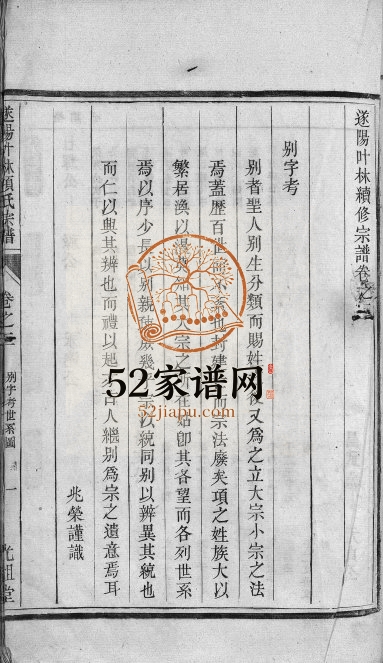 遂陽叶林續修宗譜卷之
别字考
别者聖人别生分類而賜姓後又爲之立大宗小宗之法
焉蓋歷百世而不 也封建 而宗法廢矣項之姓族大以
繁居渙以 其大宗之 姑卽其各望而各列世系
焉以序少長以别親疎 幾 宗以統同别以辨異其統也
而仁以興其辨也而禮以起 古人繼别爲宗之遺意焉耳
兆榮謹識
遂陽叶林項氏宗譜
卷之
别字考世系圖
一
光祖堂
52家谱网
52jiapu.com